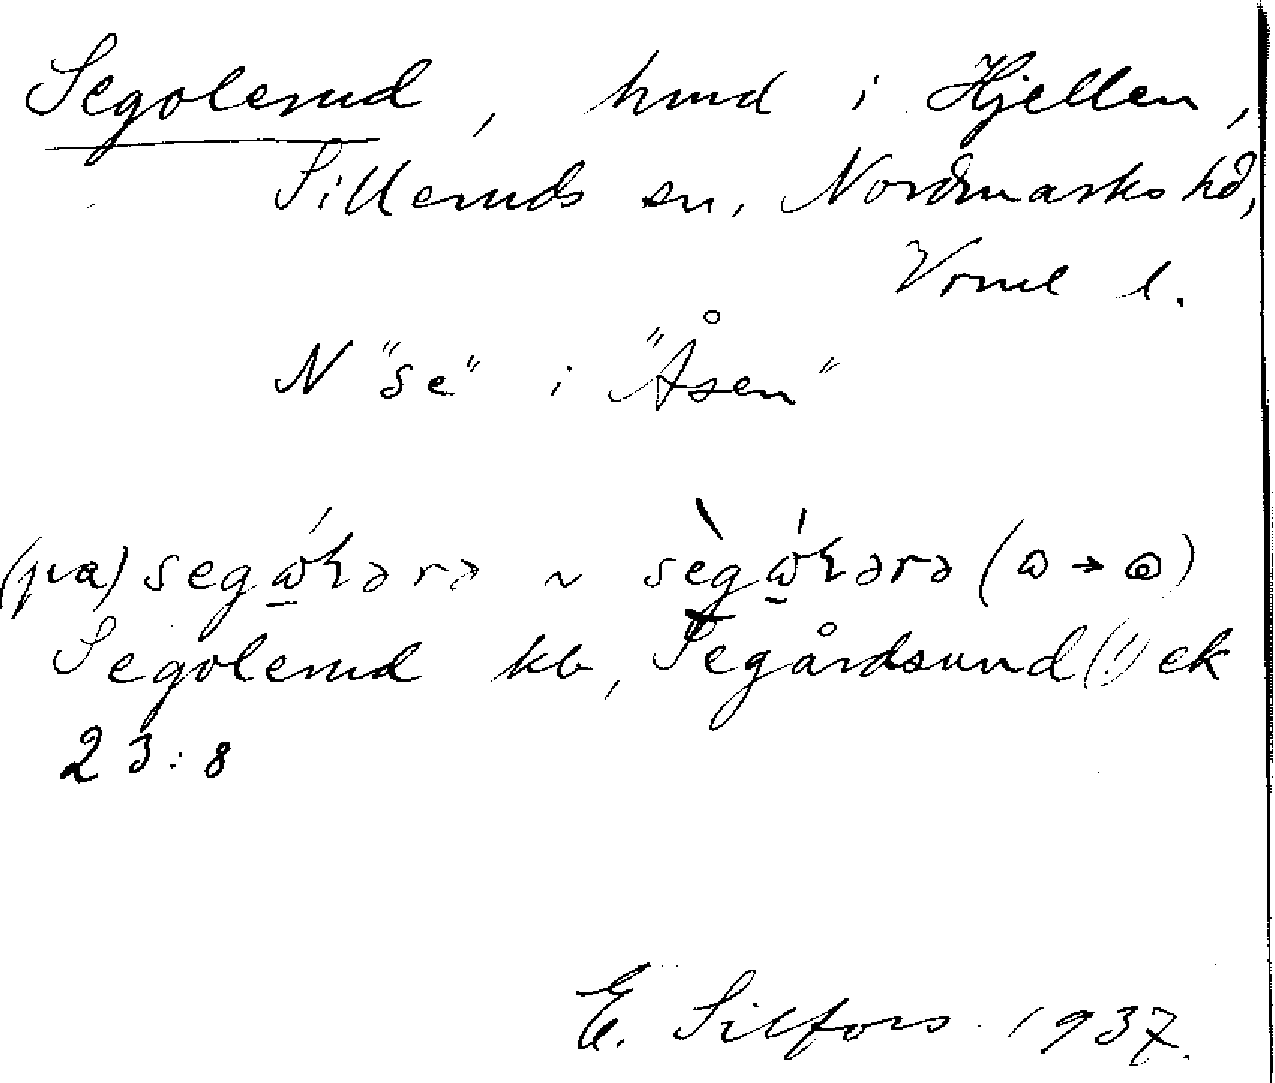 Segolerud, hmd i Hjellen,
Silleruds sn, Nordmarks hd,
Vrml l.
N "Se" i "Åsen"
(på) segɷ́ɫərə ~ sègɷ́ɫərə (ɷ → ɷ)
Segolerud kb, Segårdsund (!) ek
23:8
E. Silfors 1937.